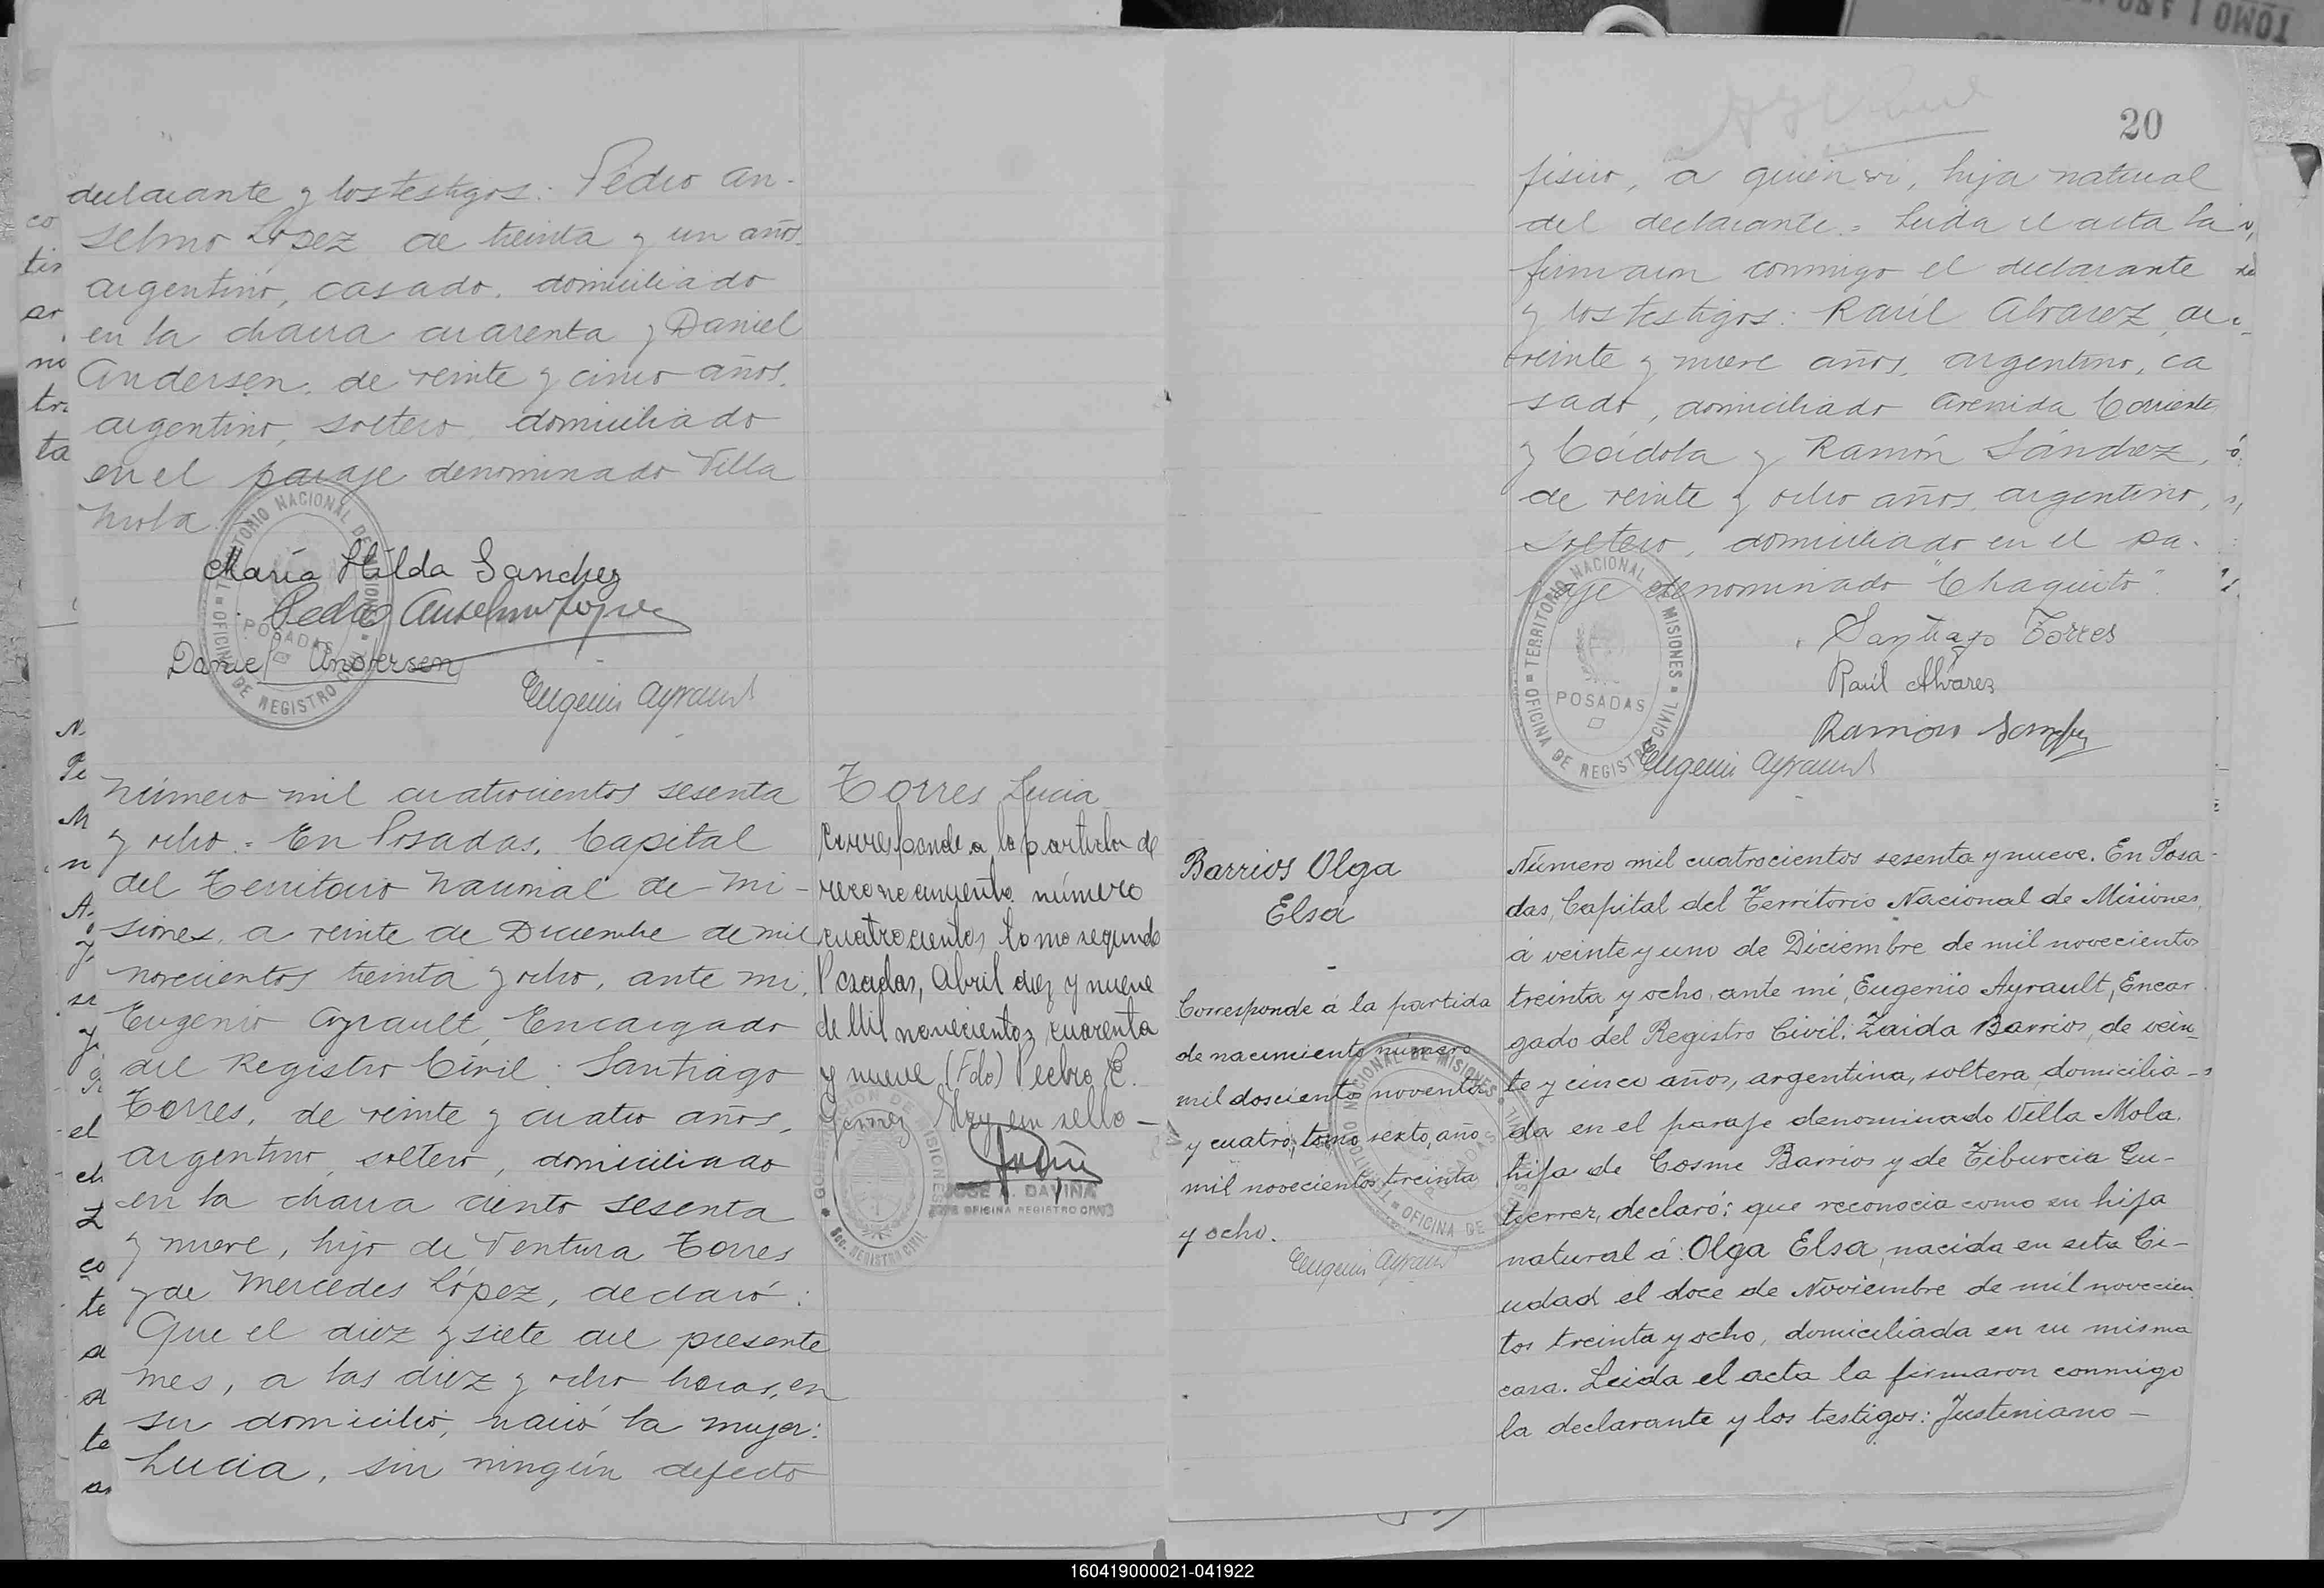 declarante y los testigos: Pedro An-
selmo López de treinta y un años
argentino, casado, domiciliado
en la chacra cuarenta y Daniel
Andersen, de veinte y cinco años,
argentino, soltero, domiciliado
en el paraje denominado Villa
Mola.
TERRITORIO NACIONAL DE MISIONES
OFICINA DE REGISTRO CIVIL
POSADAS
María Hilda Sanchez
Pedro Anselmo López
Daniel Andersen
Eugenio Ayrault
Número mil cuatrocientos sesenta
y ocho. = En Posadas, Capital
del Territorio Nacional de Mi-
siones, a veinte de Diciembre de mil
novecientos treinta y ocho, ante mi,
Eugenio Ayrault, Encargado
del Registro Civil: Santiago
Torres, de veinte y cuatro años,
argentino, soltero, domiciliado
en la chacra ciento sesenta
y nueve, hijo de Ventura Torres
y de Mercedes López, declaró:
Que el diez y siete del presente
mes, a las diez y ocho horas, en
su domicilio, nació la mujer:
Lucia, sin ningún defecto
Torres Lucia
Corresponde a la partida de
reconocimiento número
cuatrocientos tomo segundo
Posadas, Abril diez y nueve
de Mil novecientos cuarenta
y nueve (Fdo) Pedro E.
Gomez Hay un sello -
JOSE A. DAVIÑA
JEFE OFICINA REGISTRO CIVIL
20
físico, a quien vi, hija natural
del declarante. = Leida el acta la
firmaron conmigo el declarante
y los testigos: Raúl Alvarez, de
treinta y nueve años, argentino, ca
sado, domiciliado Avenida Corrientes
y Córdoba y Ramón Sánchez,
de veinte y ocho años, argentino,
soltero, domiciliado en el pa-
raje denominado "Chaquito".
TERRITORIO NACIONAL DE MISIONES
OFICINA DE REGISTRO CIVIL
POSADAS
Santiago Torres
Raúl Alvarez
Ramón Sanchez
Eugenio Ayrault
Barrios Olga
Elsa
Corresponde á la partida
de nacimiento número
mil doscientos noventa
y cuatro, tomo sexto, año
mil novecientos treinta
y ocho.
Eugenio Ayrault
Número mil cuatrocientos sesenta y nueve. En Posa-
das, Capital del Territorio Nacional de Misiones,
á veinte y uno de Diciembre de mil novecientos
treinta y ocho, ante mi, Eugenio Ayrault, Encar
gado del Registro Civil: Zaida Barrios, de vein-
te y cinco años, argentina, soltera, domicilia-
da en el paraje denominado Villa Mola,
hija de Cosme Barrios y de Tiburcia Gu-
tierrez, declaró: que reconocia como su hija
natural á: Olga Elsa, nacida en esta Ci-
udad el doce de Noviembre de mil novecien
tos treinta y ocho, domiciliada en su misma
casa. Leida el acta la firmaron conmigo
la declarante y los testigos: Justiniano -
160419000021-041922